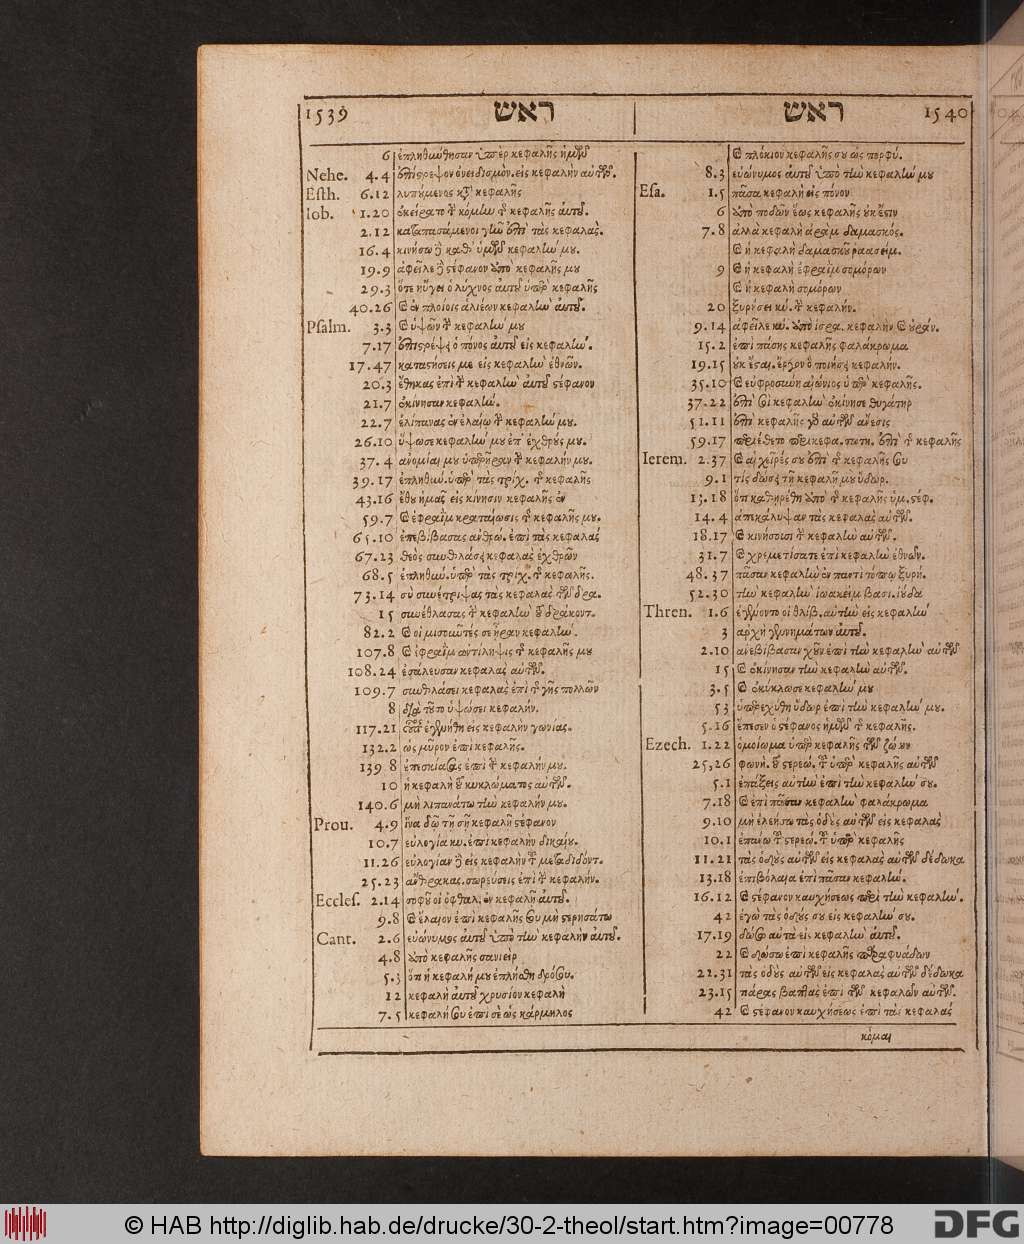 1539 ראש ראש 1540
6 ἐπληθύνθησαν ὑπὲρ κεφαλῆς ἡμῶν
Nehe. 4.4 ἐπίστρεψον ὀνειδισμὸν εἰς κεφαλὴν αὐτῶν.
Esth. 6.12 λυπούμενος κατὰ κεφαλῆς
Iob. 1.20 ἐκείρατο τὴν κόμην τῆς κεφαλῆς αὐτοῦ.
2.12 καταπασάμενοι γῆν ἐπὶ τὰς κεφαλάς.
16.4 κινήσω καθ' ὑμῶν κεφαλήν μου.
19.9 ἀφεῖλε στέφανον ἀπὸ κεφαλῆς μου
29.3 ὅτε ηὔγει ὁ λύχνος αὐτοῦ ὑπὲρ κεφαλῆς
40.26 καὶ ἐν πλοίοις ἁλιέων κεφαλὴν αὐτοῦ.
Psalm. 3.3 καὶ ὑψῶν τὴν κεφαλήν μου
7.17 ἐπιστρέψει ὁ πόνος αὐτοῦ εἰς κεφαλήν.
17.47 καταστήσεις με εἰς κεφαλὴν ἐθνῶν.
20.3 ἔθηκας ἐπὶ τὴν κεφαλὴν αὐτοῦ στέφανον
21.7 ἐκίνησαν κεφαλήν.
22.7 ἐλίπανας ἐν ἐλαίῳ τὴν κεφαλήν μου.
26.10 ὕψωσε κεφαλήν μου ἐπ' ἐχθρούς μου.
37.4 ἀνομίαι μου ὑπερῆραν τὴν κεφαλήν μου.
39.17 ἐπληθύν. ὑπὲρ τὰς τρίχ. τῆς κεφαλῆς
43.16 ἔθου ἡμᾶς εἰς κίνησιν κεφαλῆς ἐν
59.7 καὶ ἐφραῒμ κραταίωσις τῆς κεφαλῆς μου.
65.10 ἐπεβίβασας ἀνθρώ. ἐπὶ τὰς κεφαλὰς
67.23 θεὸς συνθλάσει κεφαλὰς ἐχθρῶν
68.5 ἐπληθύν. ὑπὲρ τὰς τρίχ. τῆς κεφαλῆς.
73.14 σὺ συνέτριψας τὰς κεφαλὰς τῶν δρα.
15 συνέθλασας τὴν κεφαλὴν τοῦ δράκοντ.
82.2 καὶ οἱ μισοῦντές σε ἦραν κεφαλήν.
107.8 καὶ ἐφραῒμ ἀντίληψις τῆς κεφαλῆς μου
108.24 ἐσάλευσαν κεφαλὰς αὐτῶν.
109.7 συνθλάσει κεφαλὰς ἐπὶ τῆς γῆς πολλῶν
8 διὰ τοῦτο ὑψώσει κεφαλήν.
117.21 οὗτος ἐγενήθη εἰς κεφαλὴν γωνίας.
132.2 ὡς μῦρον ἐπὶ κεφαλῆς.
139 8 ἐπεσκίασας ἐπὶ τὴν κεφαλήν μου.
10 ἡ κεφαλὴ τοῦ κυκλώματος αὐτῶν.
140.6 μὴ λιπανάτω τὴν κεφαλήν μου.
Prou. 4.9 ἵνα δῷ τῇ σῇ κεφαλῇ στέφανον
10.7 εὐλογία κυ. ἐπὶ κεφαλὴν δικαίου.
11.26 εὐλογίαν εἰς κεφαλὴν τοῦ μεταδιδόντ.
25.23 ἄνθρακας. σωρεύσεις ἐπὶ τὴν κεφαλήν.
Eccles. 2.14 σοφοῦ οἱ ὀφθαλ. ἐν κεφαλῇ αὐτοῦ.
9.8 καὶ ἔλαιον ἐπὶ κεφαλῆς σου μὴ στερησάτω
Cant. 2.6 εὐώνυμος αὐτοῦ ὑπὸ τὴν κεφαλήν αὐτοῦ.
4.8 ἀπὸ κεφαλῆς σανιεὶρ
5.3 ὅτι ἡ κεφαλή μου ἐπλήσθη δρόσου.
12 κεφαλὴ αὐτοῦ χρυσίον κεφαλὴ
7.5 κεφαλή σου ἐπὶ σὲ ὡς κάρμηλος
καὶ πλόκιον κεφαλῆς σου ὡς πορφύ.
8.3 εὐώνυμος αὐτοῦ ὑπὸ τὴν κεφαλήν μου
Esa. 1.5 πᾶσα κεφαλὴ εἰς πόνον
6 ἀπὸ ποδῶν ἕως κεφαλῆς οὐκ ἔστιν
7.8 ἀλλὰ κεφαλὴ ἀρὰμ δαμασκός.
καὶ ἡ κεφαλὴ δαμασκοῦ ραασείμ.
9 καὶ ἡ κεφαλὴ ἐφραῒμ σομόρων
καὶ ἡ κεφαλὴ σομόρων
20 ξυρήσει κύ. τὴν κεφαλήν.
9.14 ἀφεῖλε κύ. ἀπὸ ἰσρα. κεφαλὴν καὶ οὐράν.
15.2 ἐπὶ πάσης κεφαλῆς φαλάκρωμα
19.15 οὐκ ἔσται. ἔργον ὃ ποιήσει κεφαλήν.
35.10 καὶ εὐφροσύνη αἰώνιος ὑπὲρ κεφαλῆς.
37.22 ἐπὶ σοὶ κεφαλὴν ἐκίνησε θυγάτηρ
51.11 ἐπὶ κεφαλῆς γὰρ αὐτῶν αἴνεσις
59.17 περιέθετο περικεφα. σωτη. ἐπὶ τῆς κεφαλῆς
Ierem. 2.37 καὶ αἱ χεῖρές σου ἐπὶ τῆς κεφαλῆς σου
9.1 τίς δώσει τῇ κεφαλῇ μου ὕδωρ.
13.18 ὅτι καθῃρέθη ἀπὸ τῆς κεφαλῆς ὑμ. στέφ.
14.4 ἀπεκάλυψαν τὰς κεφαλὰς αὐτῶν.
18.17 καὶ κινήσουσι τὴν κεφαλὴν αὐτῶν.
31.7 καὶ χρεμετίσατε ἐπὶ κεφαλὴν ἐθνῶν.
48.37 πᾶσαν κεφαλὴν ἐν παντὶ τόπῳ ξυρή.
52.30 τὴν κεφαλὴν ἰωακεὶμ βασι. ἰούδα
Thren. 1.6 ἐγένοντο οἱ θλίβ. αὐτὴν εἰς κεφαλὴν
3 ἀρχὴ γεννημάτων αὐτοῦ.
2.10 ἀνεβίβασαν χοῦν ἐπὶ τὴν κεφαλὴν αὐτῶν
15 καὶ ἐκίνησαν τὴν κεφαλὴν αὐτῶν.
3.5 καὶ ἐκύκλωσε κεφαλήν μου
53 ὑπερεχύθη ὕδωρ ἐπὶ τὴν κεφαλήν μου.
5.16 ἔπεσεν ὁ στέφανος ἡμῶν τῆς κεφαλῆς.
Ezech. 1.22 ὁμοίωμα ὑπὲρ κεφαλῆς τῶν ζώων
25,26 φωνή. τοῦ στερεώ. τοῦ ὑπὲρ κεφαλῆς αὐτῶν
5.1 ἐπάξεις αὐτὴν ἐπὶ τὴν κεφαλήν σου.
7.18 καὶ ἐπὶ πᾶσαν κεφαλὴν φαλάκρωμα
9.10 μὴ ἐλεήσω τὰς ὁδοὺς αὐτῶν εἰς κεφαλὰς
10.1 ἐπάνω τοῦ στερεώ. τοῦ ὑπὲρ κεφαλῆς
11.21 τὰς ὁδοὺς αὐτῶν εἰς κεφαλὰς αὐτῶν δέδωκα
13.18 ἐπιβόλαια ἐπὶ πᾶσαν κεφαλήν.
16.12 καὶ στέφανον καυχήσεως περὶ τὴν κεφαλήν.
42 ἐγὼ τὰς ὁδούς σου εἰς κεφαλήν σου.
17.19 δώσω αὐτὰ εἰς κεφαλὴν αὐτοῦ.
22 καὶ δώσω ἐπὶ κεφαλῆς παραφυάδων
22.31 τὰς ὁδοὺς αὐτῶν εἰς κεφαλὰς αὐτῶν δέδωκα
23.15 πάρας βαπτὰς ἐπὶ τῶν κεφαλῶν αὐτῶν.
42 καὶ στέφανον καυχήσεως ἐπὶ τὰς κεφαλάς
κόμαι
© HAB http://diglib.hab.de/drucke/30-2-theol/start.htm?image=00778
DFG